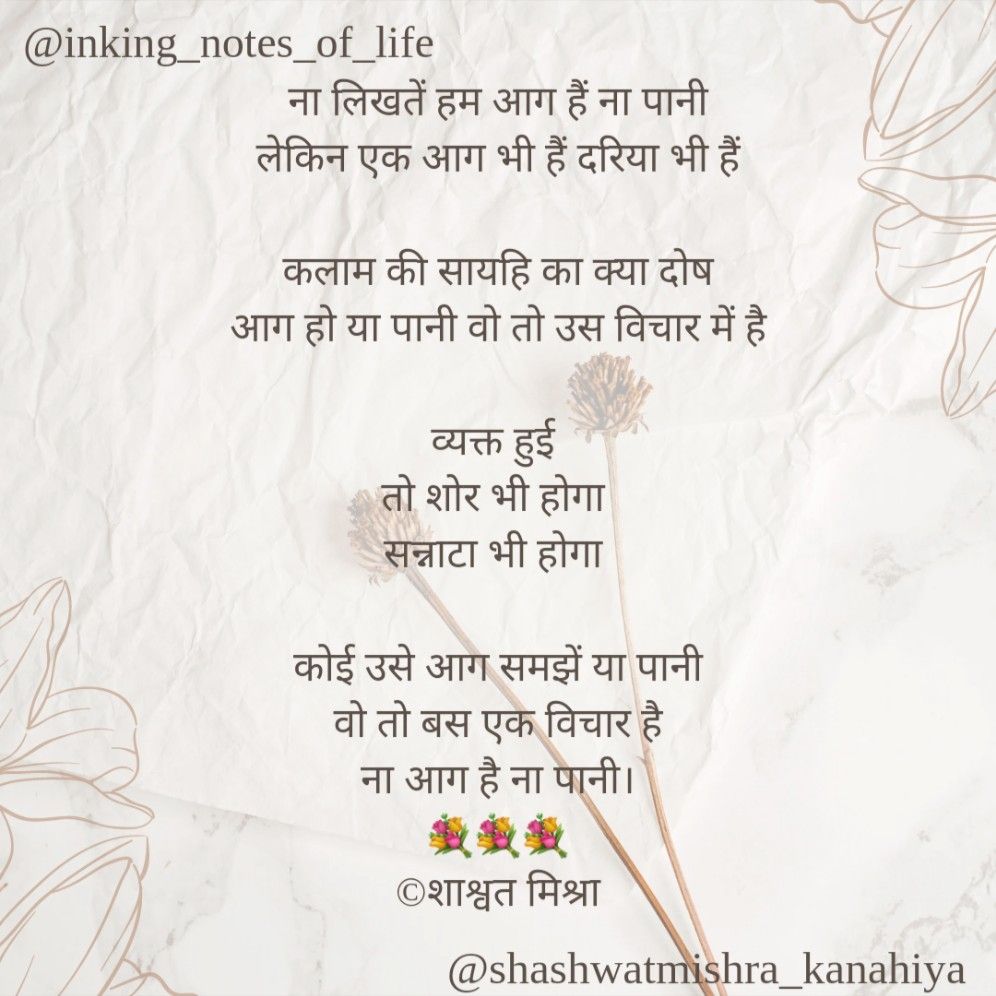 @inking_notes_of_life
ना लिखतें हम आग हैं ना पानी
लेकिन एक आग भी हैं दरिया भी हैं
कलाम की सायहि का क्या दोष
आग हो या पानी वो तो उस विचार में है
व्यक्त हुई
तो शोर भी होगा
सन्नाटा भी होगा
कोई उसे आग समझें या पानी
वो तो बस एक विचार है
ना आग है ना पानी।
💐💐💐
©शाश्वत मिश्रा
@shashwatmishra_kanahiya